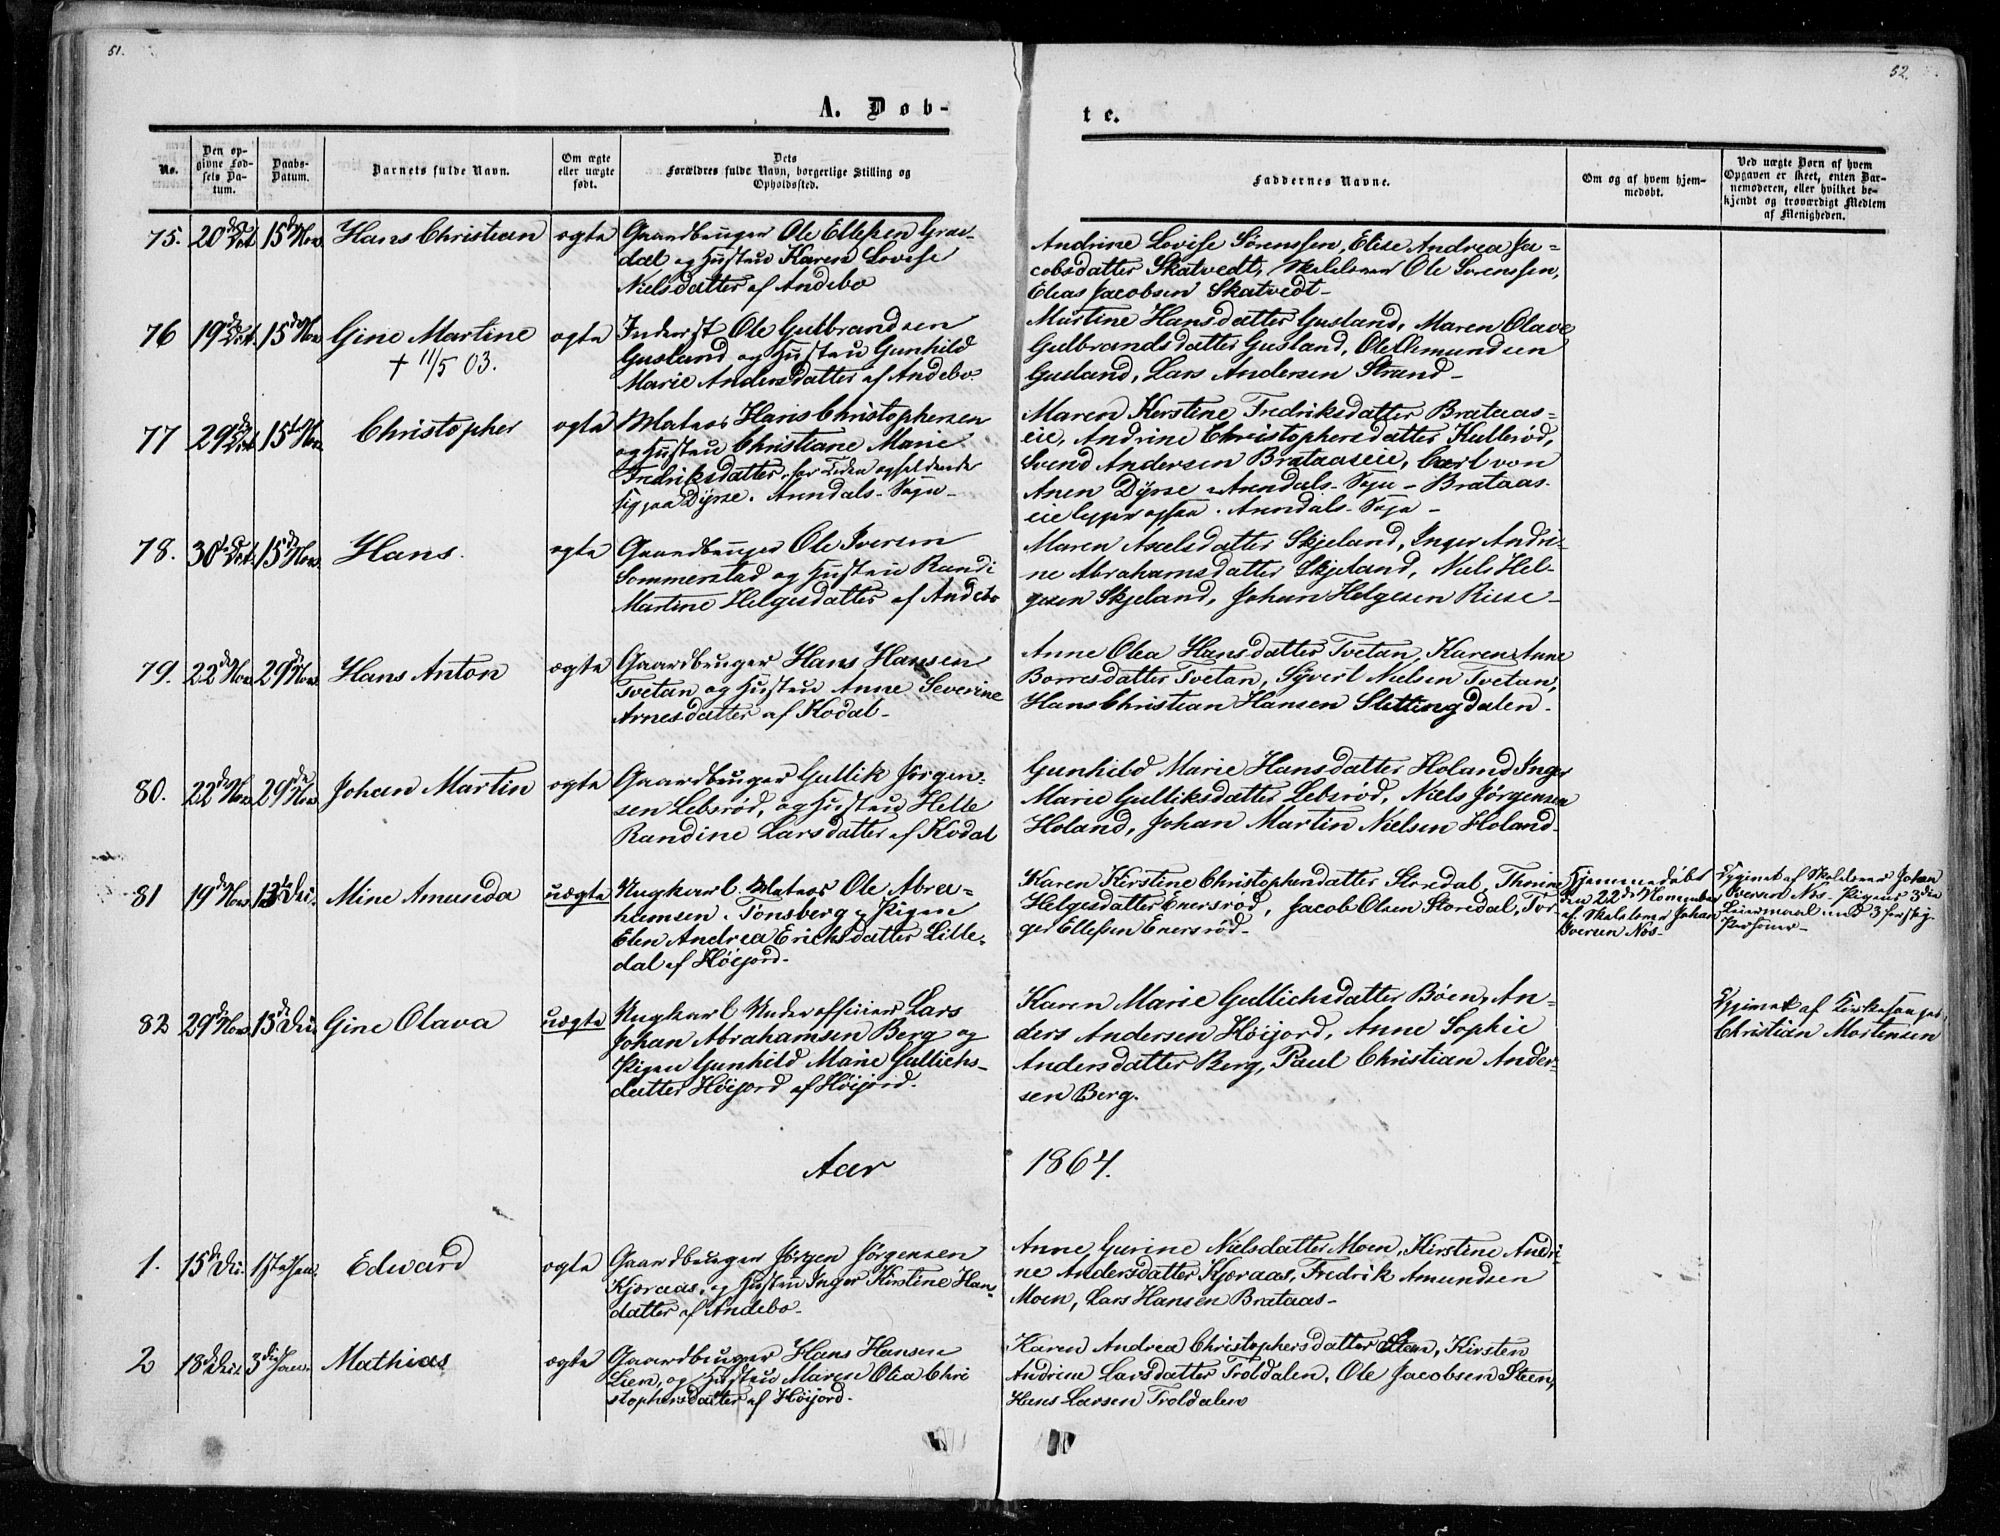 51.
52.
A. Døb-
te.
No.
Den op-
givne Fød-
sels Da-
tum.
Daabs-
Datum.
Barnets fulde Navn.
Om ægte
eller uægte
født.
Dets
Forældres fulde Navn, borgerlige Stilling og
Opholdssted.
Faddernes Navne.
Om og af hvem hjem-
medøbt.
Ved uægte Børn af hvem
Opgaven er skeet, enten Bar-
nemoderen, eller hvilket be-
kjendt og troværdigt Medlem
af Menigheden.
75. 20de Oct. 15de Nov. Hans Christian ægte Gaardbruger Ole Ellefsen Grav-
dal og Hustru Karen Lovise
Nielsdatter af Andebo
Andrine Lovise Sørenssen, Elise Andrea Ja-
cobsdatter Skatvedt, Skolelærer Ole Sørenssen,
Elias Jacobsen Skatvedt-
76 19de Oct. 15de Nov. Gine Martine ægte Inderst Ole Gulbrandsen
+ 11/5 03.
Gusland og Hustru Gunhild
Marie Andersdatter af Andebo.
Martine Hansdatter Gusland, Maren Olave
Gulbrandsdatter Gusland, Ole Osmundsen
Gusland, Lars Andersen Strand-
77 29de Oct. 15de Nov. Christopher ægte Matros Hans Christophersen
og Hustru Christiane Marie
Fredriksdatter, for Tiden opholdende
sig paa Dyrsø. Arendals Sogn-
Maren Kirstine Fredriksdatter Brataas-
eie, Andrine Christophersdatter Kullerød,
Svend Andersen Brataaseie, Carl von
Anen Dyrsø Arendals Sogn - Brataas-
eie Arendals Sogn-
78. 30te Oct. 15de Nov. Hans. ægte Gaardbruger Ole Iversen
Sommerstad og Hustru Randi
Martine Helgesdatter af Andebo
Maren Axelsdatter Skjeland, Inger Andri-
ne Abrahamsdatter Skjeland, Niels Hel-
gesen Skjeland, Johan Helgesen Riise-
79. 22de Nov. 29de Nov. Hans Anton ægte Gaardbruger Hans Hansen
Tvetan og Hustru Anne Severine
Arnesdatter af Kodal-
Anne Olea Hansdatter Tvetan, Karen Anne
Borresdatter Tvetan, Syvert Nielsen Tvetan,
Hans Christian Hansen Slettingdalen-
80. 22de Nov. 29de Nov. Johan Martin ægte Gaardbruger Gullik Jørgen-
sen Lebsrød, og Hustru Helle
Randine Larsdatter af Kodal
Gunhild Marie Hansdatter Holand, Inger
Marie Gulliksdatter Lebsrød, Niels Jørgensen
Holand, Johan Martin Nielsen Holand-
81 19de Nov. 13de Dec. Mine Amunda uægte Ungkarl Matros Ole Abra-
hamsen, Tønsberg, Pigen
Elen Andrea Erichsdatter Lille-
dal af Høijord-
Karen Kirstine Christophersdatter Storedal, Thorine
Helgesdatter Enersrød, Jacob Olsen Storedal, Tor-
ger Ellefsen Enersrød-
Hjemmedøbt
den 22de November
af Skolelærer Johan
Iversen Nos-
Opgivet af Skolelærer Johan
Iversen Nos- Pigens 3die
Leiermaal med 3 forskj:
Personer-
82 29de Nov. 13de Dec. Gine Olava uægte Ungkarl Underofficier Lars
Johan Abrahamsen Berg og
Pigen Gunhild Marie Gullichs-
datter Høijord af Høijord.
Karen Marie Gullichsdatter Bøen, An-
ders Andersen Høijord, Anne Sophie
Andersdatter Berg, Paul Christian Ander-
sen Berg.
Opgivet af Kirkesanger
Christian Mortensen
Aar 1864.
1. 15de Dec. 1ste Jan. Edvard ægte Gaardbruger Jørgen Jørgensen
Kjæraas, og Hustru Inger Kirstine Han-
datter af Andebo-
Anne Gurine Nielsdatter Moen, Kirstine Andri-
ne Andersdatter Kjæraas, Fredrik Amundsen
Moen, Lars Hansen Brataas-
2 18de Dec. 3die Jan. Mathias ægte Gaardbruger Hans Hansen
Lien, og Hustru Maren Olea Chri
stophersdatter af Høijord.
Karen Andrea Christophersdatter Steen, Kirsten
Andrine Larsdatter Troldalen, Ole Jacobsen Steen,
Hans Larsen Troldalen